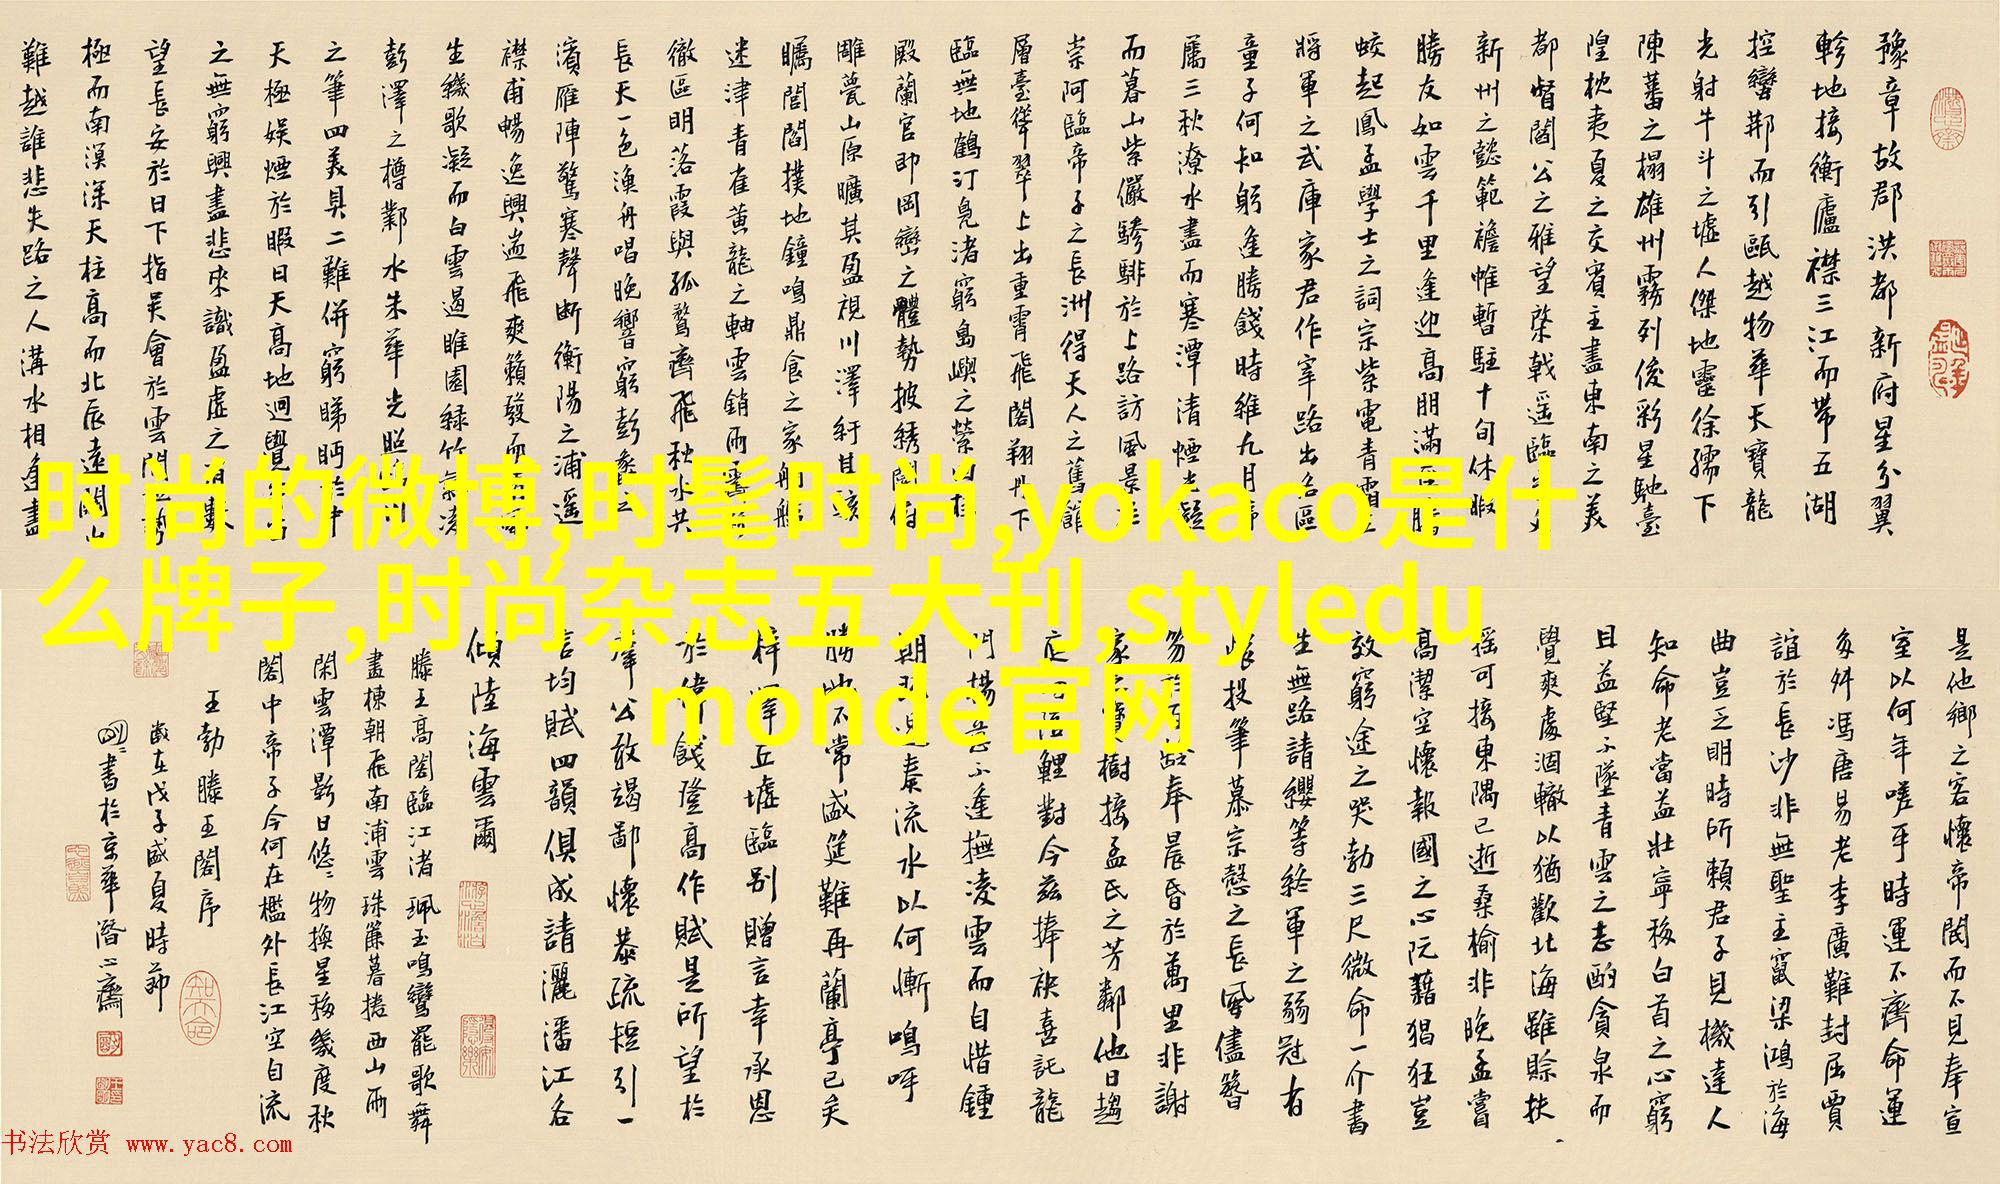 豫章故郡洪都新府星分翼
軫地接衡廬襟三江而帶五湖
控蠻荊而引甌越物華天寶龍
光射牛斗之墟人傑地靈徐孺下
陳蕃之榻雄州霧列俊彩星馳臺
隍枕夷夏之交賓主盡東南之美
都督閻公之雅望棨戟遥臨
新州之懿範襜帷暫駐十旬休暇
勝友如雲千里逢迎高朋滿
蛟起鳳孟學士之詞宗紫電青霜
將軍之武庫家君作宰路出名區
童子何知躬逢勝餞時維九月序
屬三秋潦水盡而寒潭清煙光凝
而暮山紫儼驂騑於上路訪風景於
崇阿臨帝子之長洲得天人之舊館
層臺聳翠上出重霄飛閣翔丹下
臨無地鶴汀鳧渚窮島嶼之縈回桂
殿蘭宮即岡巒之體勢披綉闥俯
雕甍山原曠其盈視川澤紆其駭
矚閭閻撲地鐘鳴鼎食之家舸艦
迷津青雀黃龍之軸雲銷雨霽
徹區明落霞與孤鶩齊飛秋水共
長天一色漁舟唱晚響窮彭蠡之
濱雁陣驚寒聲斷衡陽之浦遥
襟甫暢逸興遄飛爽籟發而
生纖歌凝而白雲遏睢園綠竹氣凌
彭澤之樽鄴水朱華光照
之筆四美具二難併窮睇眄於中
天極娛煙於暇日天高地迥覺
之無窮興盡悲來識盈虛之有數
望長安於日下指吳會於雲間
極而南溟深天柱高而北辰遠關山
難越誰悲失路之人溝水相逢盡
是他鄉之客懷帝閽而不見奉宣
室以何年嗟乎時運不齊命運
多舛馮唐易老李廣難封屈賈
誼於長沙非無聖主竄梁鴻於海
曲豈乏明時所賴君子見機達人
知命老當益壯寧移白首之心窮
且益堅不墜青雲之志酌貪泉而
覺爽處涸轍以猶歡北海雖賒扶
搖可接東隅已逝桑榆非晚孟嘗
高潔空懷報國之心阮藉猖狂豈
效窮途之哭勃三尺微命一介書
生無路請纓等終軍之弱冠有
懷投筆慕宗愨之長風儘簪
笏於百齡奉晨昏於萬里非謝
家之寶樹接孟氏之芳鄰他日趨
庭叨陪鯉對今兹捧袂喜託龍
門楊意不逢撫凌雲而自惜鍾
期既遇奏流水以何慚鳴呼
勝地不常盛筵難再蘭亭已矣
梓澤丘墟臨別贈言幸承恩
於偉餞登高作賦是所望於
羣公敢竭鄙懷恭疏短引一
言均賦四韻俱成請灑潘江各
傾陸海雲爾
滕王高閣臨江渚珮玉鳴鸞罷歌舞
畫棟朝飛南浦雲珠簾暮捲西山雨
閑雲潭影日悠〻物換星移幾度秋
閣中帝子今何在檻外長江空自流
王勃滕王閣序
歲在戊子盛夏時節
書於京華潛心齋
时尚的微博,时髦时尚,yokaco是什
么牌子,时尚杂志五大刊,styledu
monde官网
书法欣赏 www.yac8.com